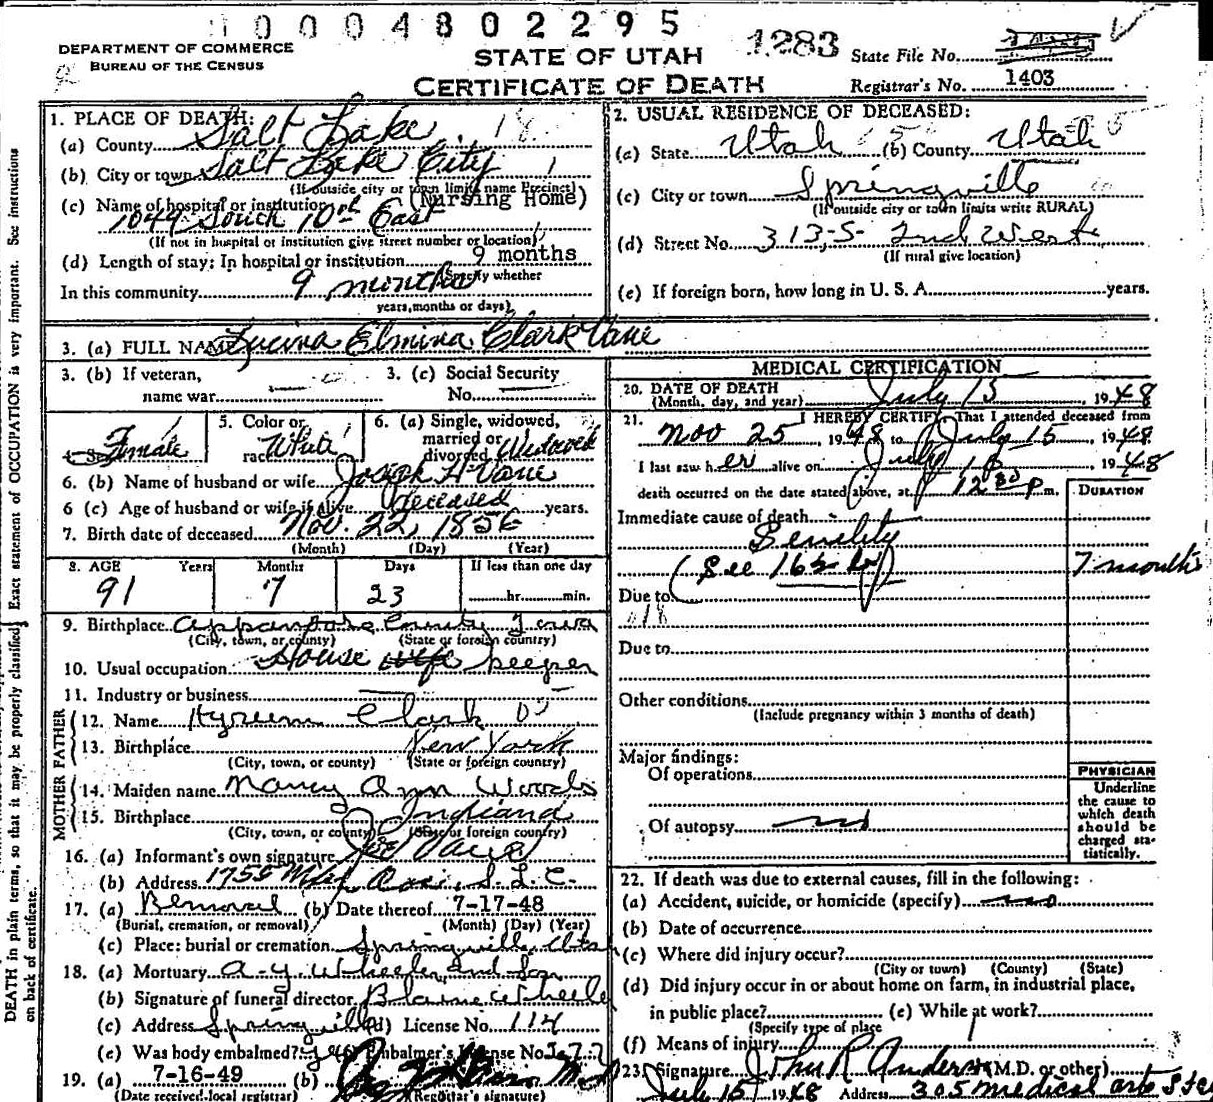 0004802295
DEPARTMENT OF COMMERCE
BUREAU OF THE CENSUS
STATE OF UTAH
CERTIFICATE OF DEATH
1283
State File No.
Registrar's No. 1403
1. PLACE OF DEATH:
(a) County Salt Lake
(b) City or town Salt Lake City
(If outside city or town limits name Precinct)
(c) Name of hospital or institution (Nursing Home)
1049 South 10th East
(If not in hospital or institution give street number or location)
(d) Length of stay: In hospital or institution 9 months
Specify whether
In this community 9 months
years, months or days)
2. USUAL RESIDENCE OF DECEASED:
(a) State Utah (b) County Utah
(c) City or town Springville
(If outside city or town limits write RURAL)
(d) Street No. 313 S 2nd West
(If rural give location)
(e) If foreign born, how long in U. S. A. years.
3. (a) FULL NAME Lucina Elmina Clark Vane
3. (b) If veteran,
name war
3. (c) Social Security
No.
4. Sex Female
5. Color or
race White
6. (a) Single, widowed,
married or
divorced Widowed
6. (b) Name of husband or wife Joseph H Vane
6 (c) Age of husband or wife if alive deceased years.
7. Birth date of deceased Nov. 22, 1856
(Month) (Day) (Year)
8. AGE Years Months Days If less than one day
91 7 23 hr. min.
9. Birthplace Appanoose County Iowa
(City, town, or county) (State or foreign country)
10. Usual occupation House wife keeper
11. Industry or business
FATHER
12. Name Hyrum Clark
13. Birthplace New York
(City, town, or county) (State or foreign country)
MOTHER
14. Maiden name Nancy Ann Woods
15. Birthplace Indiana
(City, town, or county) (State or foreign country)
16. (a) Informant's own signature Joe Vane
(b) Address 1755 S.L.C.
17. (a) Removal (b) Date thereof 7-17-48
(Burial, cremation, or removal) (Month) (Day) (Year)
(c) Place: burial or cremation Springville, Utah
18. (a) Mortuary A. Y. Wheeler and Son
(b) Signature of funeral director Blaine Wheeler
(c) Address Springville (d) License No. 114
(e) Was body embalmed? yes (f) Embalmer's License No.
19. (a) 7-16-49 (b)
(Date received local registrar) (Registrar's signature)
MEDICAL CERTIFICATION
20. DATE OF DEATH
(Month, day, and year) July 15, 1948
21. I HEREBY CERTIFY, That I attended deceased from
Nov 25, 1948 to July 15, 1948
I last saw her alive on July 15 1948
death occurred on the date stated above, at 12 30 P m.
DURATION
Immediate cause of death
Senility
(See 162 b) 7 months
Due to
Due to
Other conditions
(Include pregnancy within 3 months of death)
Major findings:
Of operations
Of autopsy no
PHYSICIAN
Underline
the cause to
which death
should be
charged sta-
tistically.
22. If death was due to external causes, fill in the following:
(a) Accident, suicide, or homicide (specify) no
(b) Date of occurrence
(c) Where did injury occur?
(City or town) (County) (State)
(d) Did injury occur in or about home on farm, in industrial place,
in public place? (e) While at work?
(Specify type of place
(f) Means of injury
23. Signature John R Anderson (M.D. or other)
July 15 1948 Address 305 medical arts
DEATH in plain terms, so that it may be properly classified. Exact statement of OCCUPATION is very important. See instructions
on back of certificate.